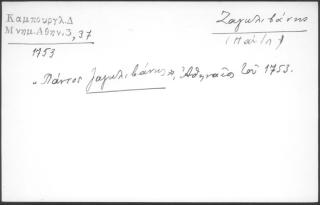 Καμπουρογλ.Δ
Μνημ.Αθην.3, 37
1753
Ζαγκλιβάνης
«Πάντος Ζαγκλιβάνης», Ἀθηναῖος τοῦ 1753.